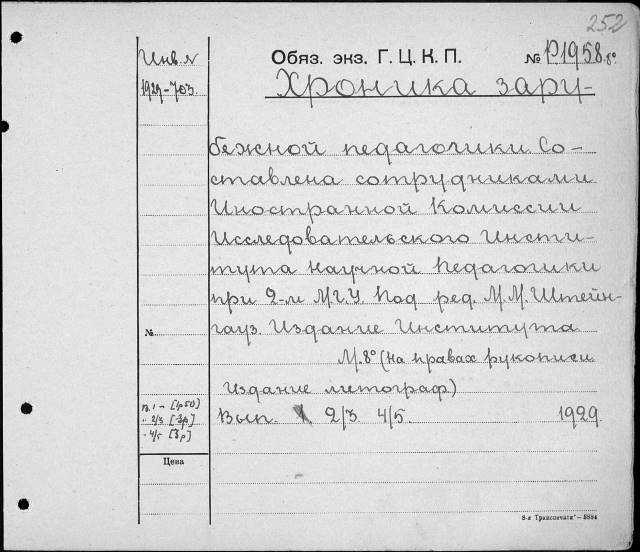 252
Инв. N
1929-703.
Обяз. экз. Г. Ц. К. П.
№ Р1958.8°
Хроника зару-
бежной педагогики. Со-
ставлена сотрудниками
Иностранной Комиссии
Исследовательского Инсти-
тута научной педагогики
при 2-м М.Г.У. Под ред. М.М. Штейн-
гауз. Издание Института
№
М. 8° (на правах рукописи
Издание литограф.)
в. 1 - [1р50]
" 2/3 [3р]
" 4/5 [3р]
Вып. 1 2/3 4/5. 1929.
Цена
8-я Транспечать — 8884